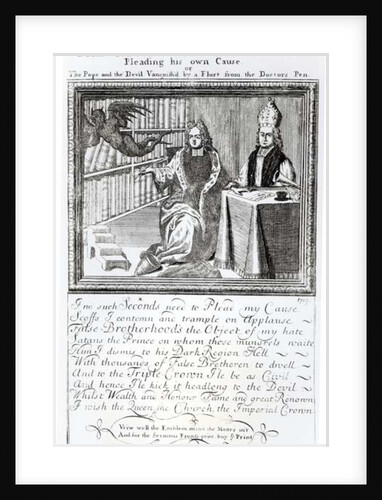 Pleading his own Cause
or
The Pope and the Devil Vanquish'd by a Flurt from the Doctors Pen.
I no such Seconds need to Plead my Cause
Scoffs I contemn and trample on Applause
False Brotherhoods the Object of my hate
Satans the Prince on whom these mungrels waite
Him I dismiss to his Dark Region Hell
With thousands of False Brethren to dwell
And to the Triple Crown I'le be as Civil
And hence I'le kick it headlong to the Devil
Whilst Wealth and Honour Fame and great Renown
I wish the Queen, the Church, the Imperial Crown
View well the Emblem mind the Motto out
And for the Sermons Fronts peice buy ye Print